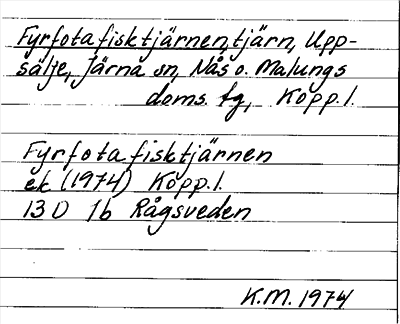 Fyrfotafisktjärnen, tjärn, Upp-
sälje, Järna sn, Nås o. Malungs
doms. tg, Kopp. l.
Fyrfotafisktjärnen
ek (1974) Kopp. l.
13 D 7b Rågsveden
K.M. 1974